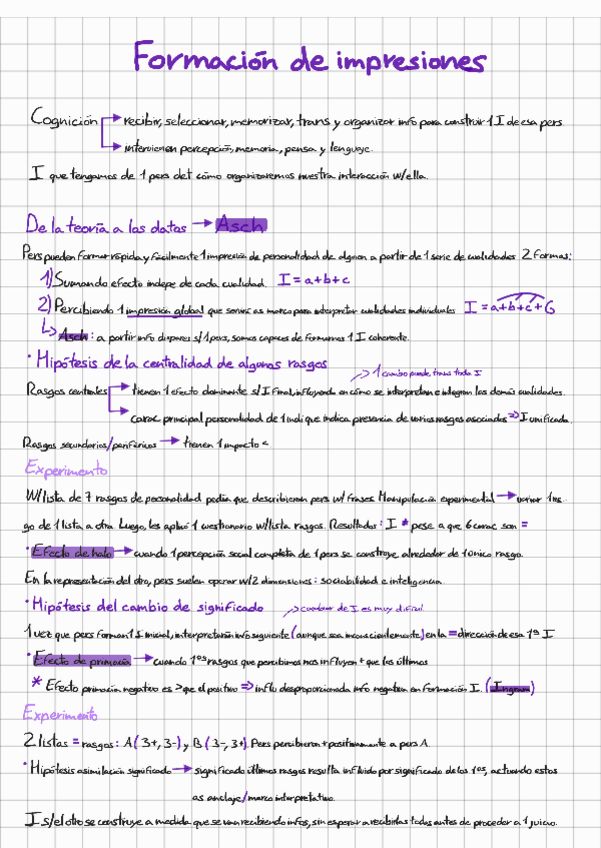 Formación de impresiones
Cognición → recibir, seleccionar, memorizar, trans y organizar info para construir 1 I de esa pers
→ intervienen percepción, memoria, pensa y lenguaje.
I que tengamos de 1 pers det cómo organizaremos nuestra interacción w/ella.
De la teoría a los datos → Asch
Pers pueden formar rápida y fácilmente 1 impresión de personalidad de alguien a partir de 1 serie de cualidades 2 formas:
1) Sumando efecto indepe de cada cualidad. I = a+b+c
2) Percibiendo 1 impresión global que servirá as marco para interpretar cualidades individuales I = a+b+c+G
↳ Asch: a partir info dispares s/1 pers, somos capaces de formarnos 1 I coherente.
· Hipótesis de la centralidad de algunos rasgos
→ 1 cambio puede trans toda I
Rasgos centrales → tienen 1 efecto dominante s/I final, influyendo en cómo se interpretan e integran los demás cualidades.
→ carac principal personalidad de 1 indi que indica presencia de varios rasgos asociados ⇒ I unificada.
Rasgos secundarios/periféricos → tienen 1 impacto <
Experimento
W/lista de 7 rasgos de personalidad pedía que describieran pers w/ frases. Manipulación experimental → variar 1 ras-
go de 1 lista a otra. Luego, les aplicó 1 cuestionario w/lista rasgos. Resultados: I ≠ pese a que 6 carac son =
· Efecto de halo → cuando 1 percepción social completa de 1 pers se construye alrededor de 1 único rasgo.
En la representación del otro, pers suelen operar w/2 dimensiones: sociabilidad e inteligencia.
· Hipótesis del cambio de significado → cambiar de I es muy difícil
1 vez que pers forman 1 I inicial, interpretarán info siguiente (aunque sea inconscientemente) en la = dirección de esa 1ª I
· Efecto de primacía → cuando 1ºs rasgos que percibimos nos influyen + que los últimos
* Efecto primacía negativo es > que el positivo ⇒ influ desproporcionada info negativa en formación I. (Ingram)
Experimento
2 listas = rasgos: A (3+, 3-) y B (3-, 3+). Pers percibieron + positivamente a pers A.
· Hipótesis asimilación significado → significado últimos rasgos resulta influido por significado de los 1ºs, actuando estos
as anclaje/marco interpretativo.
I s/el otro se construye a medida que se van recibiendo infos, sin esperar a recibirlas todas antes de proceder a 1 juicio.